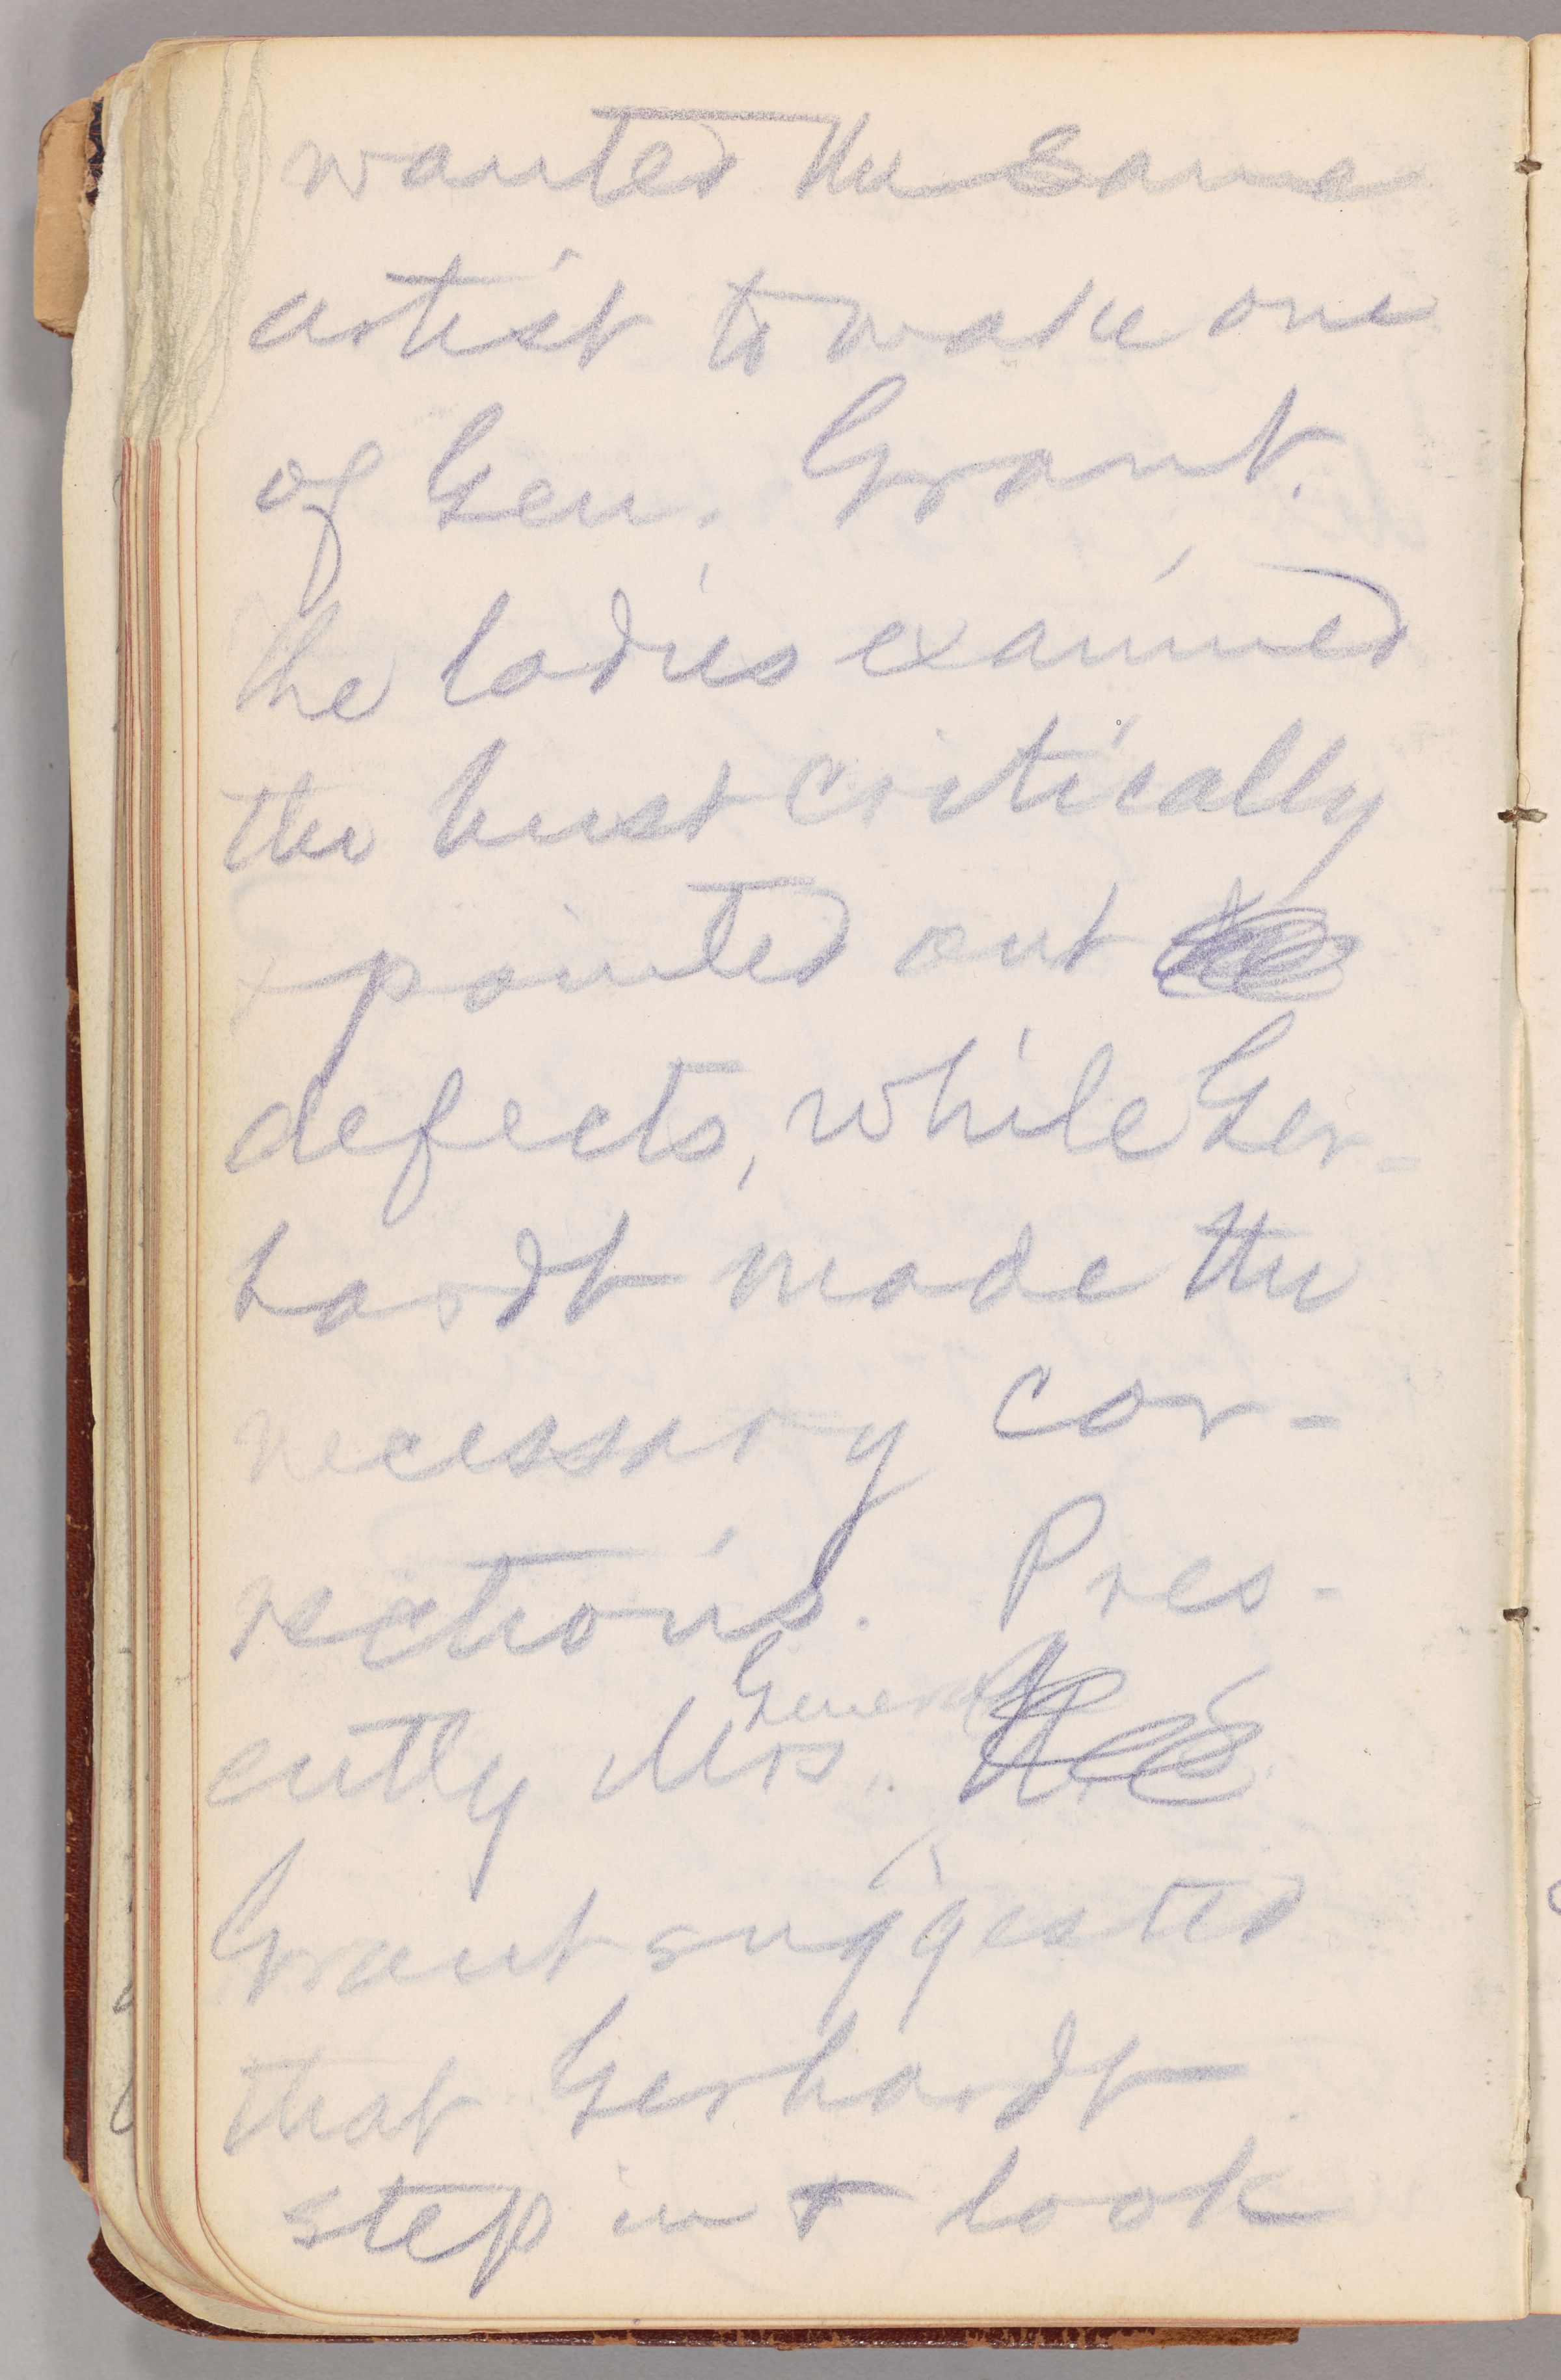 wanted the same
artist to make one
of Gen. Grant.
The ladies examined
the bust critically
& pointed out
defects, while Ger-
hardt made the
necessary cor-
rections. Pres-
ently Mrs. General
Grant suggested
that Gerhardt
step in & look